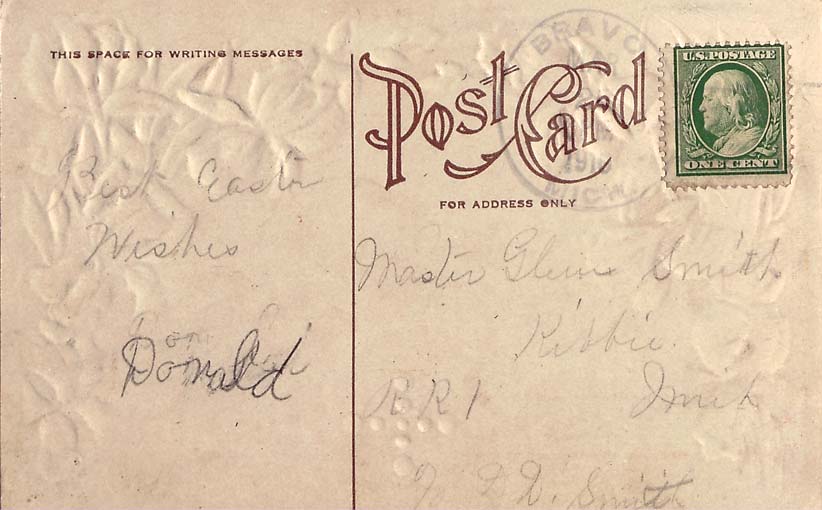 THIS SPACE FOR WRITING MESSAGES
Post Card
FOR ADDRESS ONLY
BRAVO
1910
MICH.
U.S. POSTAGE
ONE CENT
Best Easter
Wishes
Donald
Master Glenn Smith
Kibbie
RR1
Smith